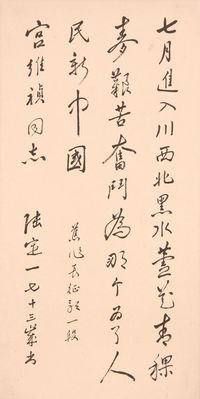 七月進入川西北黑水蘆花青稞
麥艱苦奮鬥為那个为了人
民新中國
舊作長征歌一段
宮維禎同志
陸定一七十三歲書